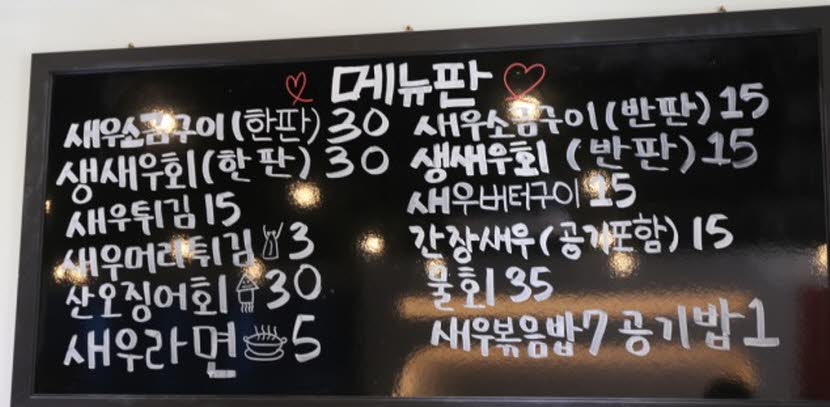 메뉴판
새우소금구이(한판) 30
생새우회(한판) 30
새우튀김 15
새우머리튀김 3
산오징어회 30
새우라면 5
새우소금구이(반판) 15
생새우회 (반판) 15
새우버터구이 15
간장새우(공기포함) 15
물회 35
새우볶음밥 7 공기밥 1